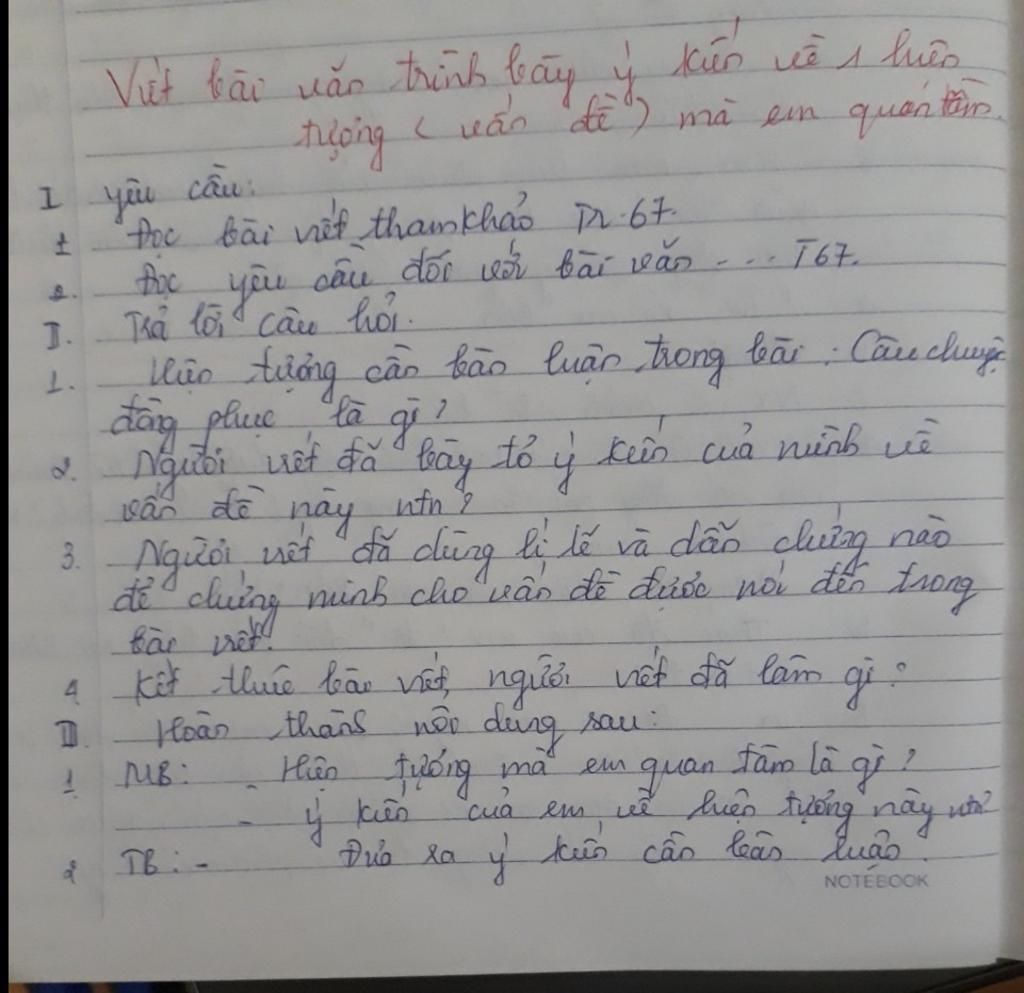 Viết bài văn trình bày ý kiến về 1 hiện
tượng (vấn đề) mà em quan tâm.
I yêu cầu:
1 Đọc bài viết tham khảo Tr.67.
2. Đọc yêu cầu đối với bài văn ... T67.
II. Trả lời câu hỏi.
1. Hiện tượng cần bàn luận trong bài: Câu chuyện
đồng phục là gì?
2. Người viết đã bày tỏ ý kiến của mình về
vấn đề này ntn?
3. Người viết đã dùng lí lẽ và dẫn chứng nào
để chứng minh cho vấn đề được nói đến trong
bài viết?
4 Kết thúc bài viết, người viết đã làm gì?
III. Hoàn thành nội dung sau:
1 MB: - Hiện tượng mà em quan tâm là gì?
- ý kiến của em về hiện tượng này ntn?
2 TB: - Đưa ra ý kiến cần bàn luận.
NOTEBOOK